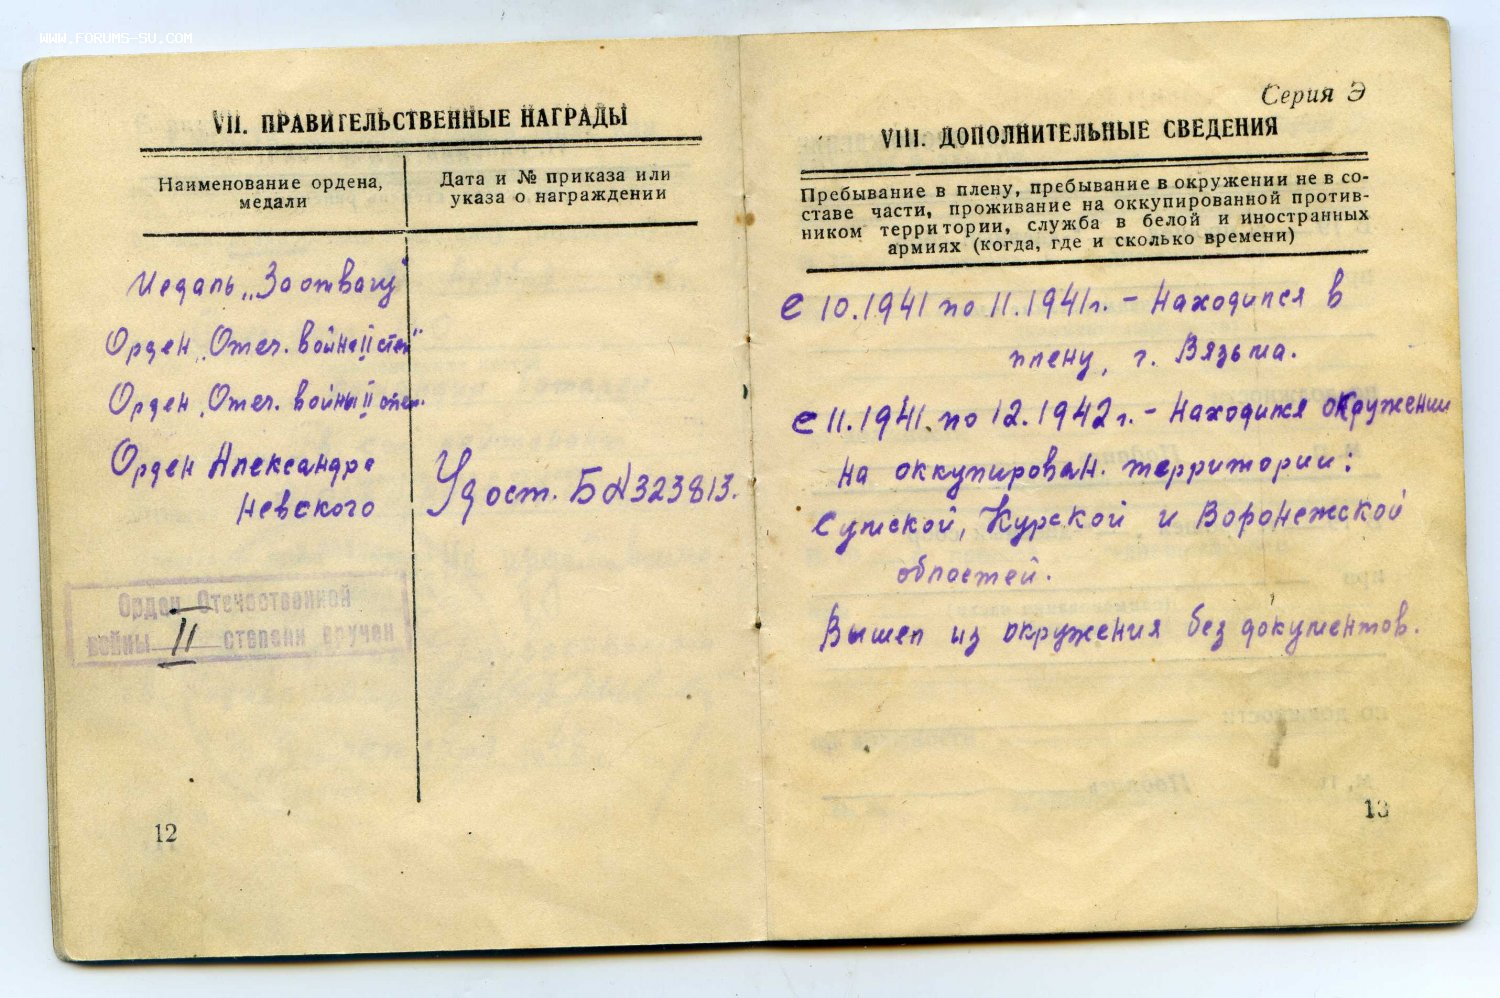 WWW.FORUMS-SU.COM
VII. ПРАВИТЕЛЬСТВЕННЫЕ НАГРАДЫ
Наименование ордена,
медали
Дата и № приказа или
указа о награждении
Медаль „За отвагу"
Орден „Отеч. войны II степ"
Орден „Отеч. войны II степ.
Орден Александра
Невского
Удост. Б № 323813.
Орден Отечественной
войны II степени вручен
12
Серия Э
VIII. ДОПОЛНИТЕЛЬНЫЕ СВЕДЕНИЯ
Пребывание в плену, пребывание в окружении не в со-
ставе части, проживание на оккупированной против-
ником территории, служба в белой и иностранных
армиях (когда, где и сколько времени)
С 10.1941 по 11.1941г. - Находился в
плену, г. Вязьма.
С 11.1941. по 12.1942г. - Находился окружении
на оккупирован. территории:
Сумской, Курской и Воронежской
областей.
Вышел из окружения без документов.
13